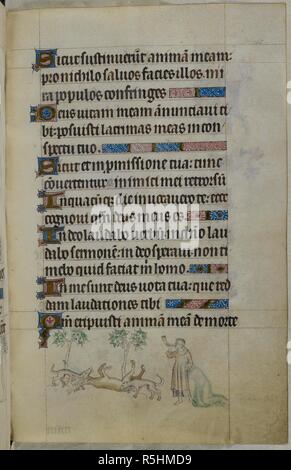 Sicut sustinuerūt animam meam:
pro nichilo saluos facies illos. in i
ra populos confringes
Deus uitam meam annunciaui ti
bi: posuisti lacrimas meas in con
spectu tuo.
Sicut et in pmissione tua: tunc
cōuertentur inimici mei retrorsū
In quacūq; die inuocauero te: ecce
cognoui qm deus meus es
In deo laudabo uerbum in dño lau
dabo sermonē: in deo speraui non ti
mebo quid faciat m homo.
In me sunt deus uota tua: que red
dam laudationes tibi
Qm eripuisti animam meā de morte
alamy
Image ID: R5HMD9
www.alamy.com